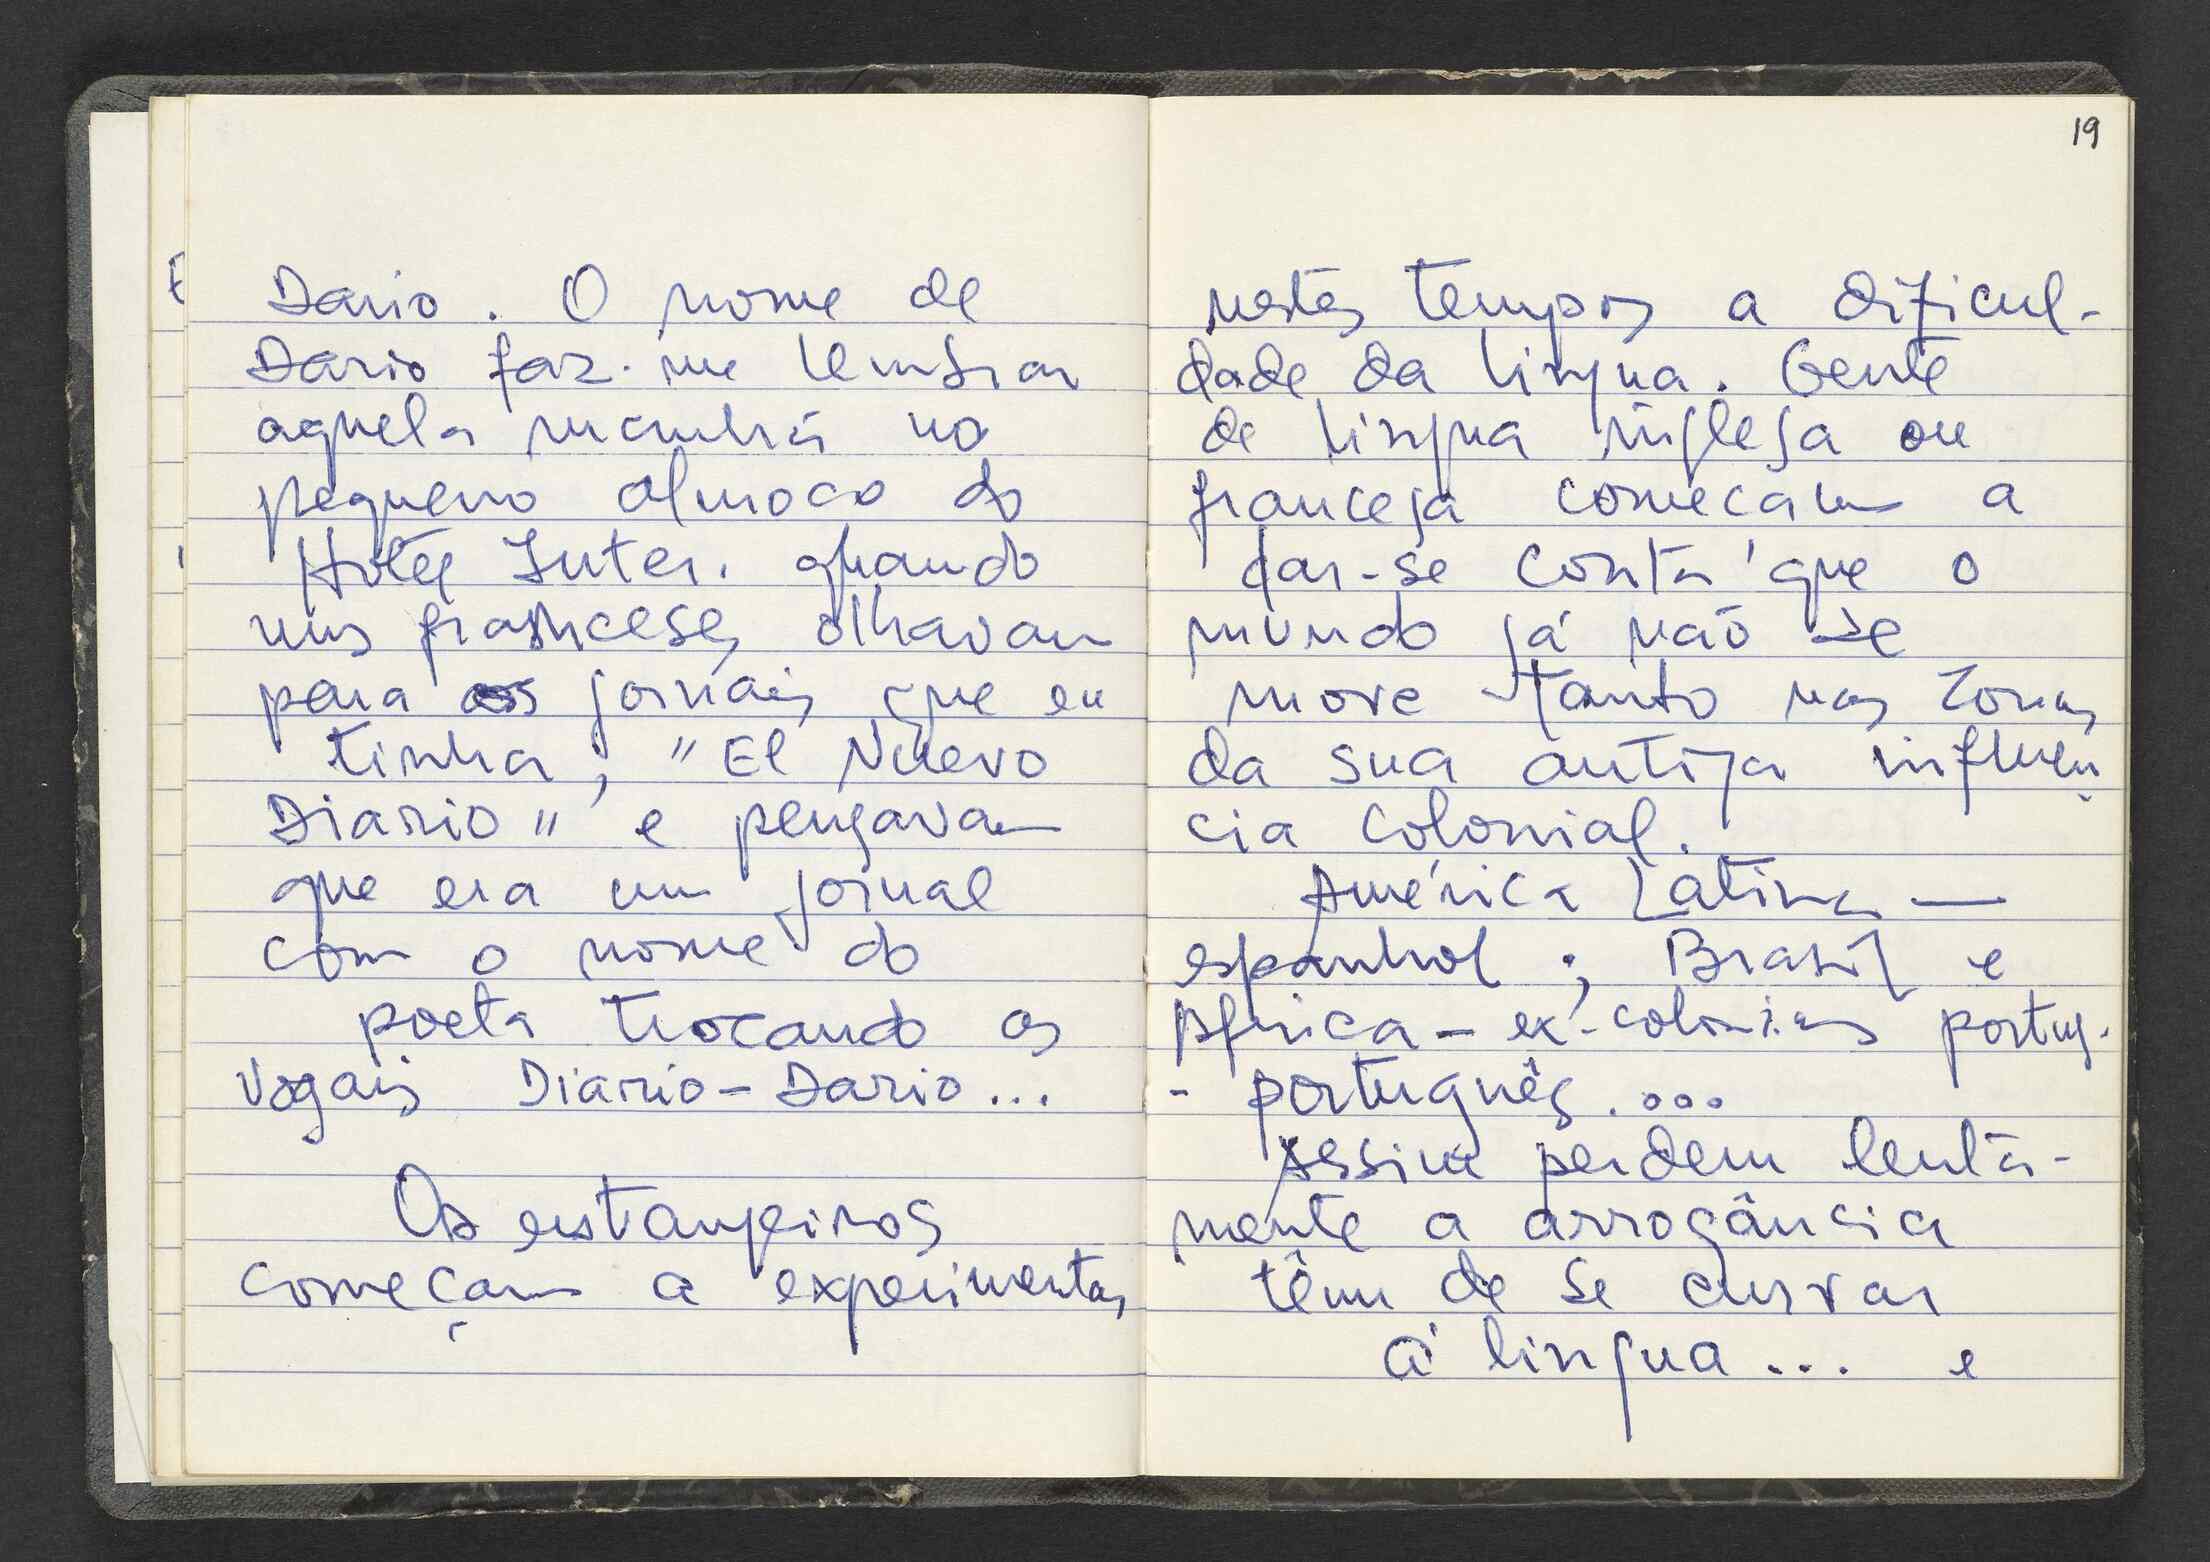 Dario. O nome de
Dario faz-me lembrar
aquela manhã no
pequeno almoço do
Hotel Inter. quando
uns franceses olhavam
para os jornais que eu
tinha, "El Nuevo
Diario" e pensavam
que era um jornal
com o nome do
poeta trocando as
vogais Diario-Dario...
Os estangeiros
começam a experimentar
19
nestes tempos a dificul-
dade da lingua. Gente
de lingua inglesa ou
francesa começam a
dar-se conta que o
mundo já não se
move tanto nas zonas
da sua antiga influen
cia colonial.
América Latina —
espanhol; Brasil e
Africa - ex-colonias portug.
- português....
Assim perdem lenta-
mente a arrogância
têm de se curvar
à lingua... e